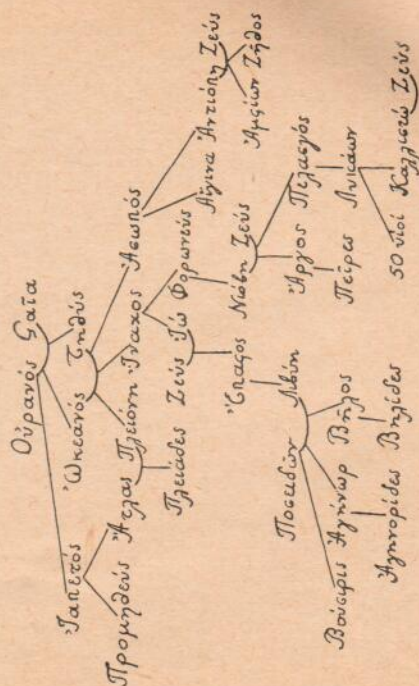 Οὐρανός Γαῖα
Ἰαπετός Ὠκεανός Τηθύς
Προμηθεύς Ἄτλας Πλειόνη Ἴναχος Ἀσωπός
Πλειάδες Ζεύς Ἰώ Φορωνεύς Αἴγινα Ἀντιόπη Ζεύς
Ἔπαφος Νιόβη Ζεύς Ἀμφίων Ζῆθος
Ποσειδῶν Λιβύη Ἄργος Πελασγός
Βούσιρις Ἀγήνωρ Βῆλος Πεῖρες Λυκάων
Ἀγηνορίδες Βηλίδες 50 υἱοί Καλλιστώ Ζεύς